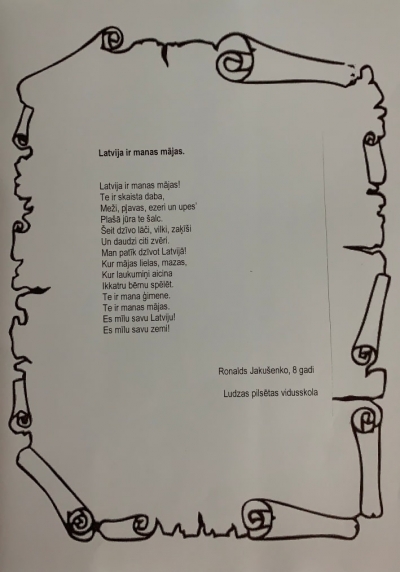 Latvija ir manas mājas.
Latvija ir manas mājas!
Te ir skaista daba,
Meži, pļavas, ezeri un upes'
Plašā jūra te šalc.
Šeit dzīvo lāči, vilki, zaķīši
Un daudzi citi zvēri.
Man patīk dzīvot Latvijā!
Kur mājas lielas, mazas,
Kur laukumiņi aicina
Ikkatru bērnu spēlēt.
Te ir mana ģimene.
Te ir manas mājas.
Es mīlu savu Latviju!
Es mīlu savu zemi!
Ronalds Jakušenko, 8 gadi
Ludzas pilsētas vidusskola